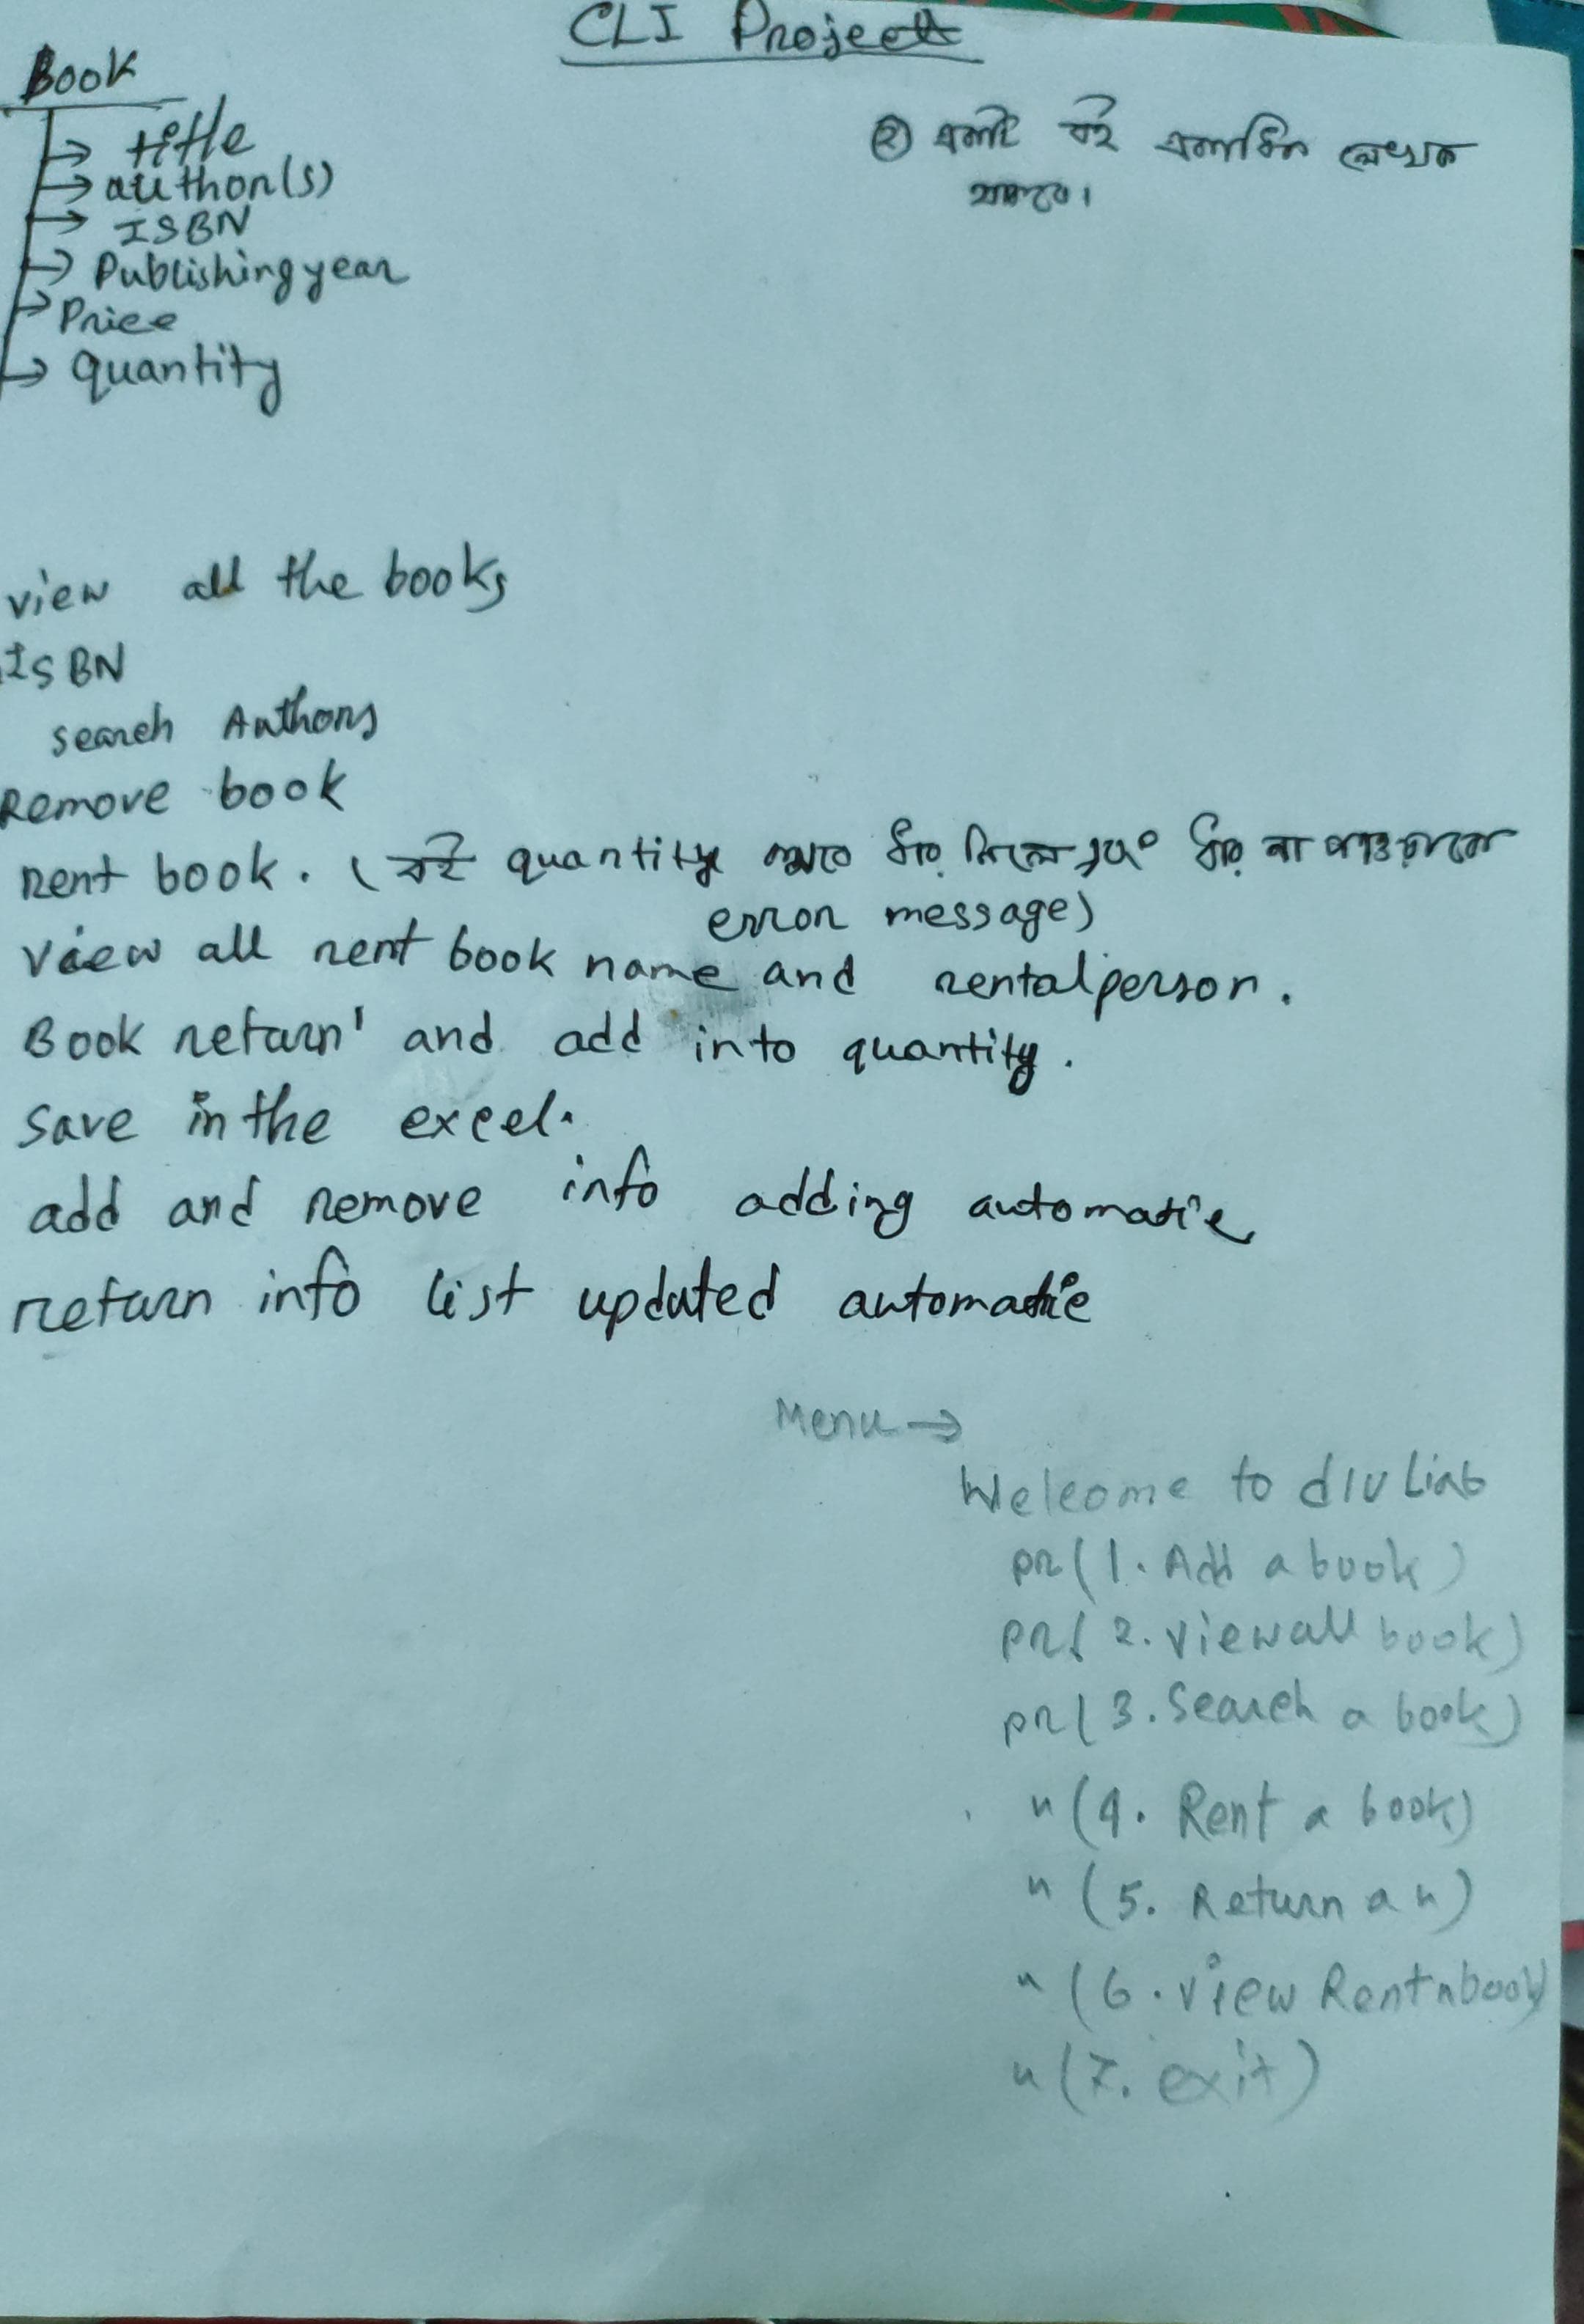 CLI Project
Book
→ title
→ author(s)
→ ISBN
→ Publishing year
→ Price
→ quantity
② একই বই একাধিক লেখক
থাকবে।
view all the books
ISBN
search Authors
Remove book
rent book. (বই quantity কমবে ধার নিলে এবং ধার না পাওয়া গেলে
error message)
View all rent book name and rental person.
Book return and add into quantity.
save in the excel.
add and remove info adding automatic
return info list updated automatic
Menu →
Welcome to dIU Lib
pr(1. Add a book)
pr(2. view all book)
pr(3. Search a book)
"(4. Rent a book)
"(5. Return a ")
"(6. view Rent book)
"(7. exit)